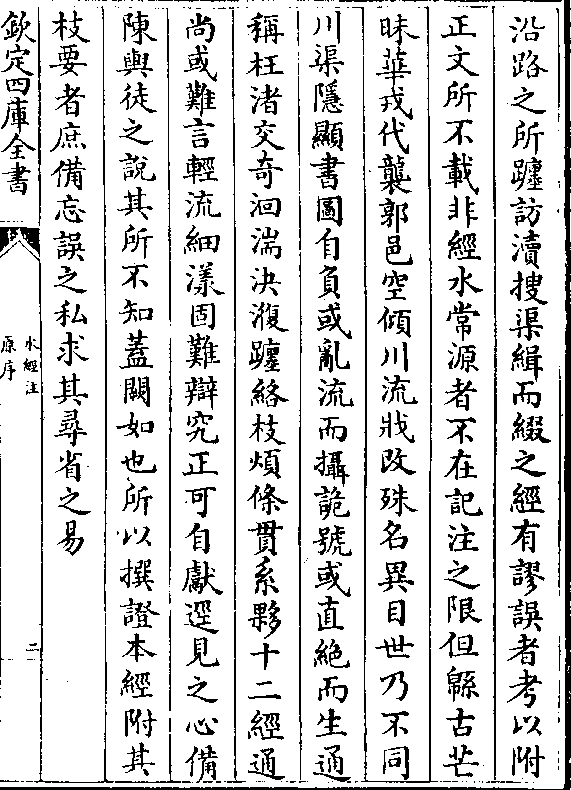 沿路之所躔訪瀆搜渠緝而綴之經有謬誤者考以附
正文所不載非經水常源者不在記注之限但緜古芒
昧華戎代襲郭邑空傾川流戕改殊名異目世乃不同
川渠隱顯書圖自負或亂流而攝詭號或直絶而生通
稱枉渚交奇洄湍決澓躔絡枝煩條貫系夥十二經通
尚或難言輕流細漾固難辯究正可自獻逕見之心備
陳輿徒之說其所不知蓋闕如也所以撰證本經附其
枝要者庶備忘誤之私求其尋省之易
欽定四庫全書
水經注
原序
二